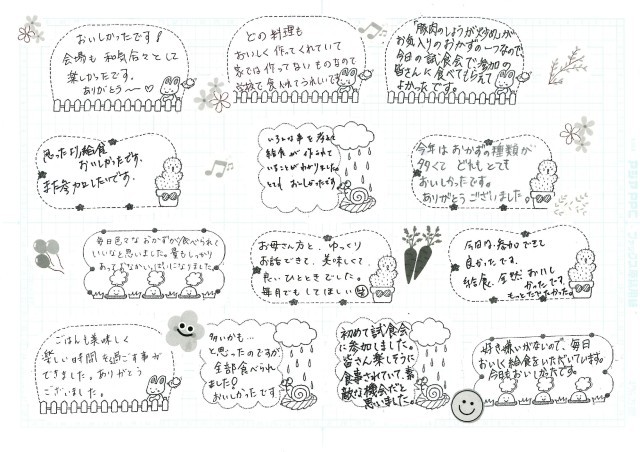 おいしかったです!
会場も和気合々として
楽しかったです。
ありがとう〜♡
どの料理も
おいしく作ってくれていて
家では作ってないものなので
学校で食べれてうれしいです。
「豚肉のしょうが炒め」が
お気入りのおかずの一つなので
今日の試食会で参加の
皆さんに食べてもらえて
よかったです。
思ったより給食
おいしかったです。
また参加したいです。
いろんな事を考えて
給食が作られて
いることがわかりました。
とても おいしかったです
今年はおかずの種類が
多くて どれもとても
おいしかったです。
ありがとうございました。
毎日色々なおかずが食べられて
いいなと思いました。量もしっかり
あっておなかいっぱいになりました。
お母さん方と、ゆっくり
お話できて、美味しくて、
良いひとときでした。
毎月でもしてほしい
今日は参加できて
良かったです。
給食、全然おいし
かったです。
もっとたべたかった。
ごはんも美味しく
楽しい時間を過ごす事が
できました。ありがとう
ございました。
多いかも…
と思ったのですが
全部食べられ
ました!
おいしかったです
初めて試食会
に参加しました。
皆さん楽しそうに
食事されていて、素
敵な機会だと
思いました。
好き嫌いがないので、毎日
おいしく給食をいただいています。
今日もおいしかったです。